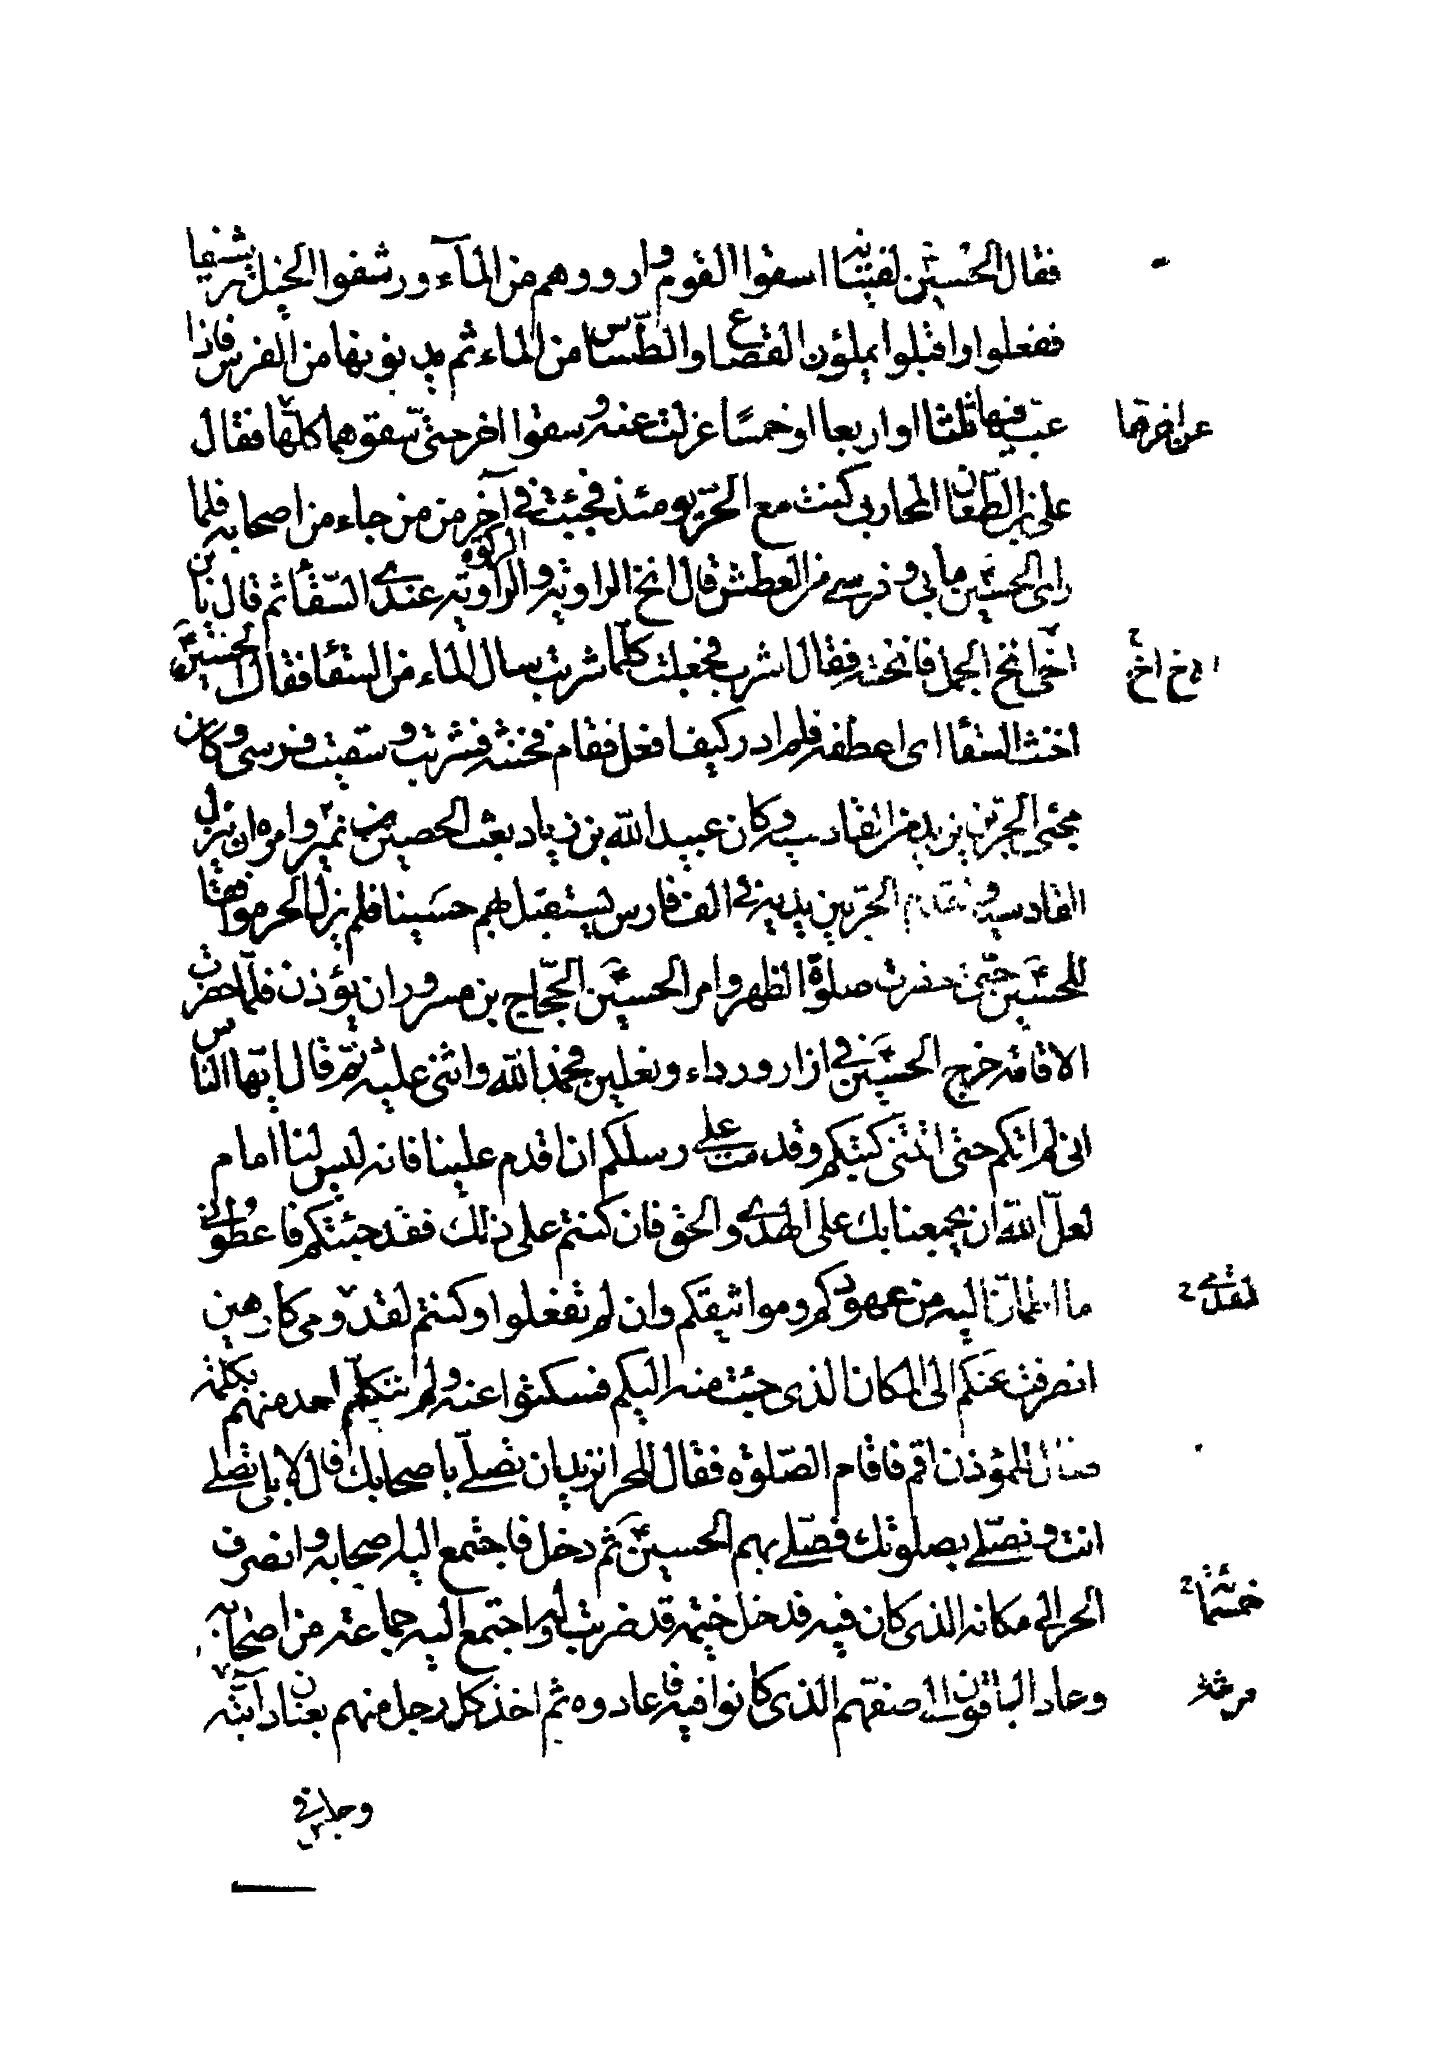 فقال الحسين لفتيانه اسقوا القوم وارووهم من المآء ورشفوا الخيل ترشيفا
ففعلوا واقبلوا يملؤن القصاع والطساس من الماء ثم يدنونها من الفرس فاذا
عبّ فيها ثلثا او اربعا او خمسًا عزلت عنه وسقوا اخر حتى سقوهما كلها فقال
علي بن الطعان المحاربي كنت مع الحرّ يومئذ فجئت في آخر من من جاء من اصحابه فلما
راى الحسين ما بي وفرسي من العطش قال انخ الراوية والراوية عندي السقا ثم قال يابن
اخي انخ الجمل فانخته فقال اشرب فجعلت كلما شربت سال الماء من السقا فقال الحسين
اخنث السقا اى اعطفه فلم ادر كيف افعل فقام فخنثه فشربت وسقيت فرسي وكان
مجئى الحر بن يزيد من القادسيه وكان عبيد الله بن زياد بعث الحصين بن نمير وامره ان ينزل
القادسيه وتقدم الحرّ بين يديه في الف فارس يستقبل لهم حسينا فلم يزل الحر موافقا
للحسين حتى حضرت صلوة الظهر وامر الحسين الحجّاج بن مسرور ان يؤذن فلما حضرت
الاقامة خرج الحسين في ازار ورداء ونعلين فحمد الله واثنى عليه ثم قال ايها الناس
انى لم اتكم حتى اتتنى كتبكم وقدمت علي رسلكم ان اقدم علينا فانه ليس لنا امام
لعلّ الله ان يجمعنا بك على الهدى والحق فان كنتم على ذلك فقد جئتكم فاعطوني
ما اطمان اليه من عهودكم ومواثيقكم وان لم تفعلوا وكنتم لقدومى كارهين
انصرفت عنكم الى المكان الذى جئت منه اليكم فسكتوا عنه ولم يتكلم احد منهم بكلمة
فقال للمؤذن اقم فاقام الصلوة فقال للحر اتريد ان تصلي باصحابك قال لا بل تصلي
انت ونصلي بصلوتك فصلي بهم الحسين ثم دخل فاجتمع اليه اصحابه وانصرف
الحر الى مكانه الذى كان فيه فدخل خيمة قد ضربت له واجتمع اليه جماعة من اصحابه
وعاد الباقون الى صفهم الذى كانوا فيه فاعادوه ثم اخذ كل رجل منهم بعنان دابته
وجلس في